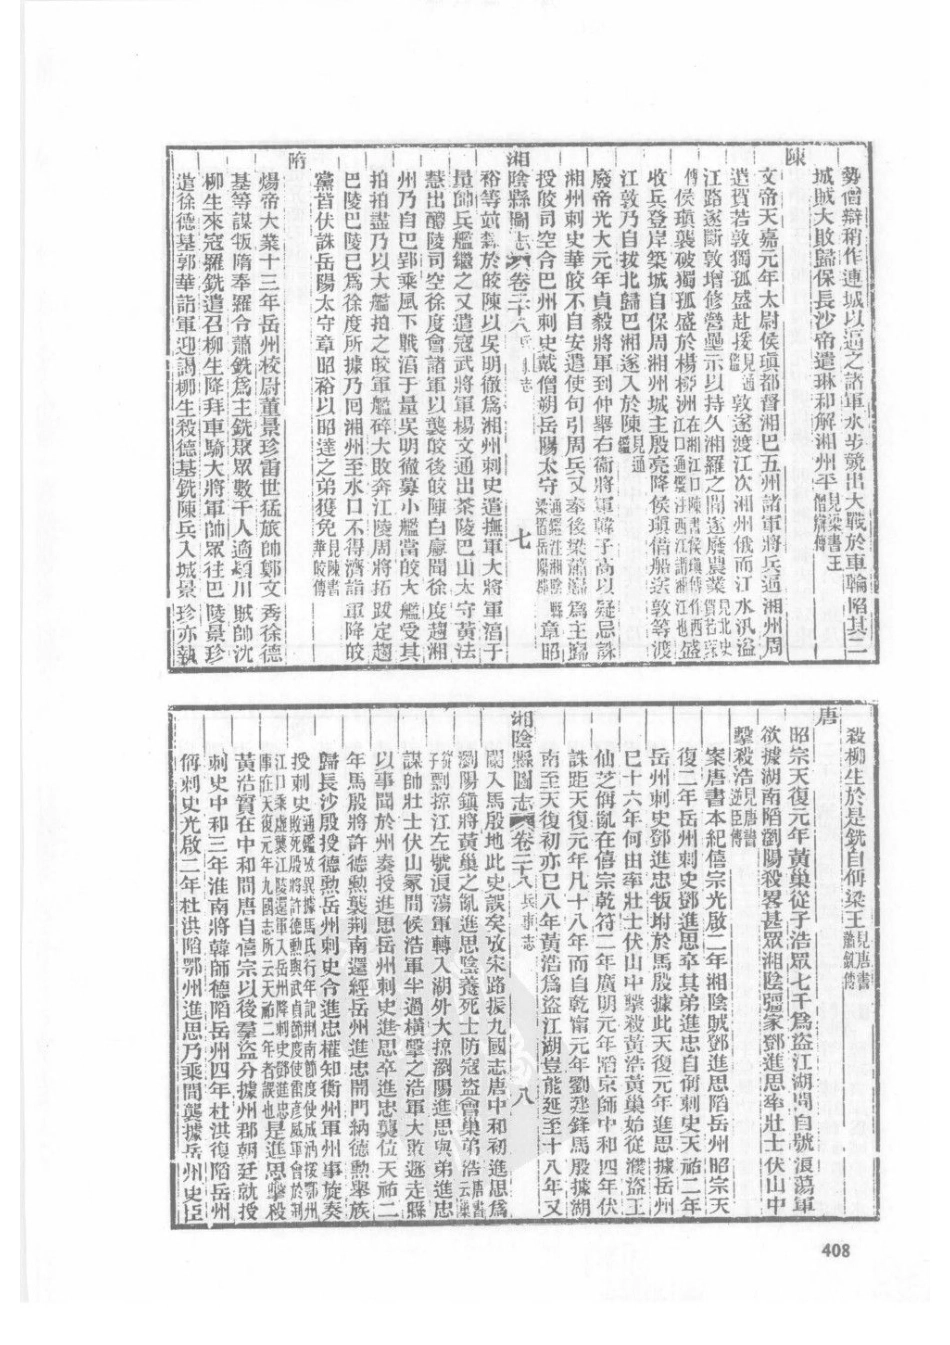 勢僧辯稍作連城以逼之諸軍水步競出大戰於車輪昭其二
城賊大敗歸保長沙帝遣琳和解湘州平見梁書王僧辯傳
陳
文帝天嘉元年太尉侯瑱都督湘巴五州諸軍將兵逼湘州周
遣賀若敦獨孤盛赴援見通鑑敦遂渡江次湘州俄而江水汎溢
江路遂斷敦增修營壘示以持久湘羅之間遂廢農業見北史賀若敦
傳侯瑱襲破獨孤盛於楊橑洲在湘江口陳書侯瑱傳作西江口通鑑注西江諸湘江也盛
收兵登岸築城自保周湘州城主殷亮降侯瑱借船送敦等渡
江敦乃自拔北歸巴湘遂入於陳見通鑑
廢帝光大元年貞毅將軍到仲舉右衞將軍韓子高以疑忌誅
湘州刺史華皎不自安遣使句引周兵又奉後梁蕭巋為主歸
授皎司空合巴州刺史戴僧朔岳陽太守通鑑注湘陰梁置岳陽郡縣章昭
湘陰縣圖志 卷二十八兵事志 七
裕等竝隸於皎陳以吳明徹為湘州刺史遣撫軍大將軍淳于
量帥兵艦繼之又遣冠武將軍楊文通出茶陵巴山太守黃法
慧出醴陵司空徐度會諸軍以襲皎後皎陣白螺聞徐度趨湘
州乃自巴郢乘風下戰淳于量吳明徹募小艦當皎大艦受其
拍拍盡乃以大艦拍之皎軍艦碎大敗奔江陵周將拓跋定趨
巴陵巴陵已為徐度所據乃囘湘州至水口不得濟詣軍降皎
黨皆伏誅岳陽太守章昭裕以昭達之弟獲免見陳書華皎傳
隋
煬帝大業十三年岳州校尉董景珍雷世猛旅帥鄭文秀徐德
基等謀叛隋奉羅令蕭銑為主銑聚眾數千人適潁川賊帥沈
柳生來寇羅銑遣召柳生降拜車騎大將軍帥眾往巴陵景珍
遣徐德基郭華詣軍迎謁柳生殺德基銑陳兵入城景珍亦執
殺柳生於是銑自偁梁王見唐書蕭銑傳
唐
昭宗天復元年黃巢從子浩眾七千為盜江湖間自號浪蕩軍
欲據湖南陷瀏陽殺畧甚眾湘陰彊家鄧進思率壯士伏山中
擊殺浩見唐書逆臣傳
案唐書本紀僖宗光啟二年湘陰賊鄧進思陷岳州昭宗天
復二年岳州刺史鄧進思卒其弟進忠自偁刺史天祐二年
岳州刺史鄧進忠叛坿於馬殷據此天復元年進思據岳州
巳十六年何由率壯士伏山中擊殺黃浩黃巢始從濮盜王
仙芝倡亂在僖宗乾符二年廣明元年陷京師中和四年伏
誅距天復元年凡十八年而自乾甯元年劉建鋒馬殷據湖
南至天復初亦巳八年黃浩為盜江湖豈能延至十八年又
湘陰縣圖志 卷二十八兵事志 八
闌入馬殷地此史誤矣攷宋路振九國志唐中和初進思為
瀏陽鎮將黃巢之亂進思陰養死士防寇盜會巢弟浩唐書云巢
從子剽掠江左號浪蕩軍轉入湖外大掠瀏陽進思與弟進忠
謀帥壯士伏山冢間候浩軍半過橫擊之浩軍大敗遯走縣
以事聞於州奏授進思岳州刺史進思卒進忠襲位天祐二
年馬殷將許德勳襲荆南還經岳州進忠開門納德勳舉族
歸長沙殷授德勳岳州刺史令進忠權知衡州軍州事旋奏
授刺史通鑑攷異據馬氏行年記荆南節度使成汭援鄂州敗死殷將許德勳與武貞節度使雷彥威軍會於荆
江口乘虛襲江陵還軍入岳州降刺史鄧進忠事在天復元年九國志所云天祐二年者誤也是進思擊殺
黃浩實在中和間唐自僖宗以後羣盜分據州郡朝廷就授
刺史中和三年淮南將韓師德陷岳州四年杜洪復陷岳州
偁刺史光啟二年杜洪陷鄂州進思乃乘間襲據岳州史臣
408